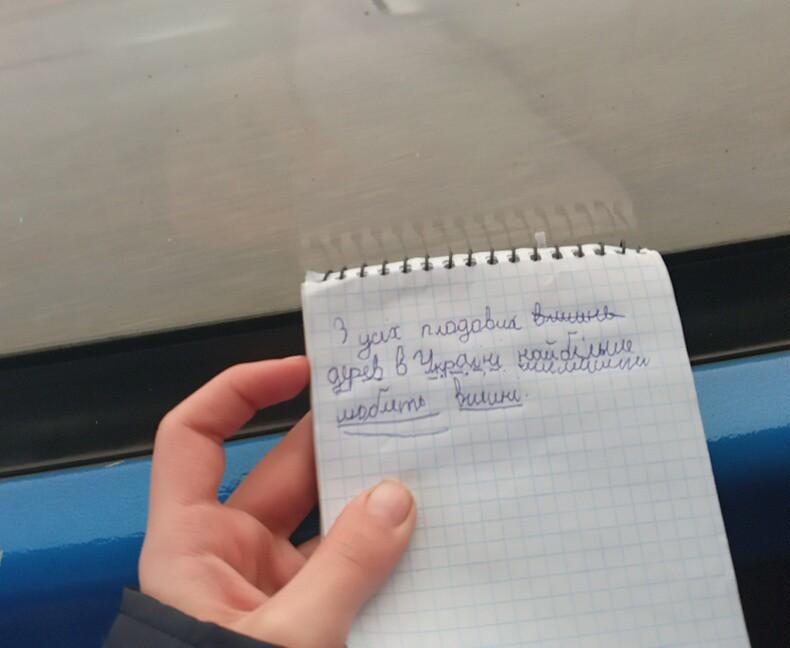 З усіх плодових вишень
дерев в Україні найбільше
люблять вишні.